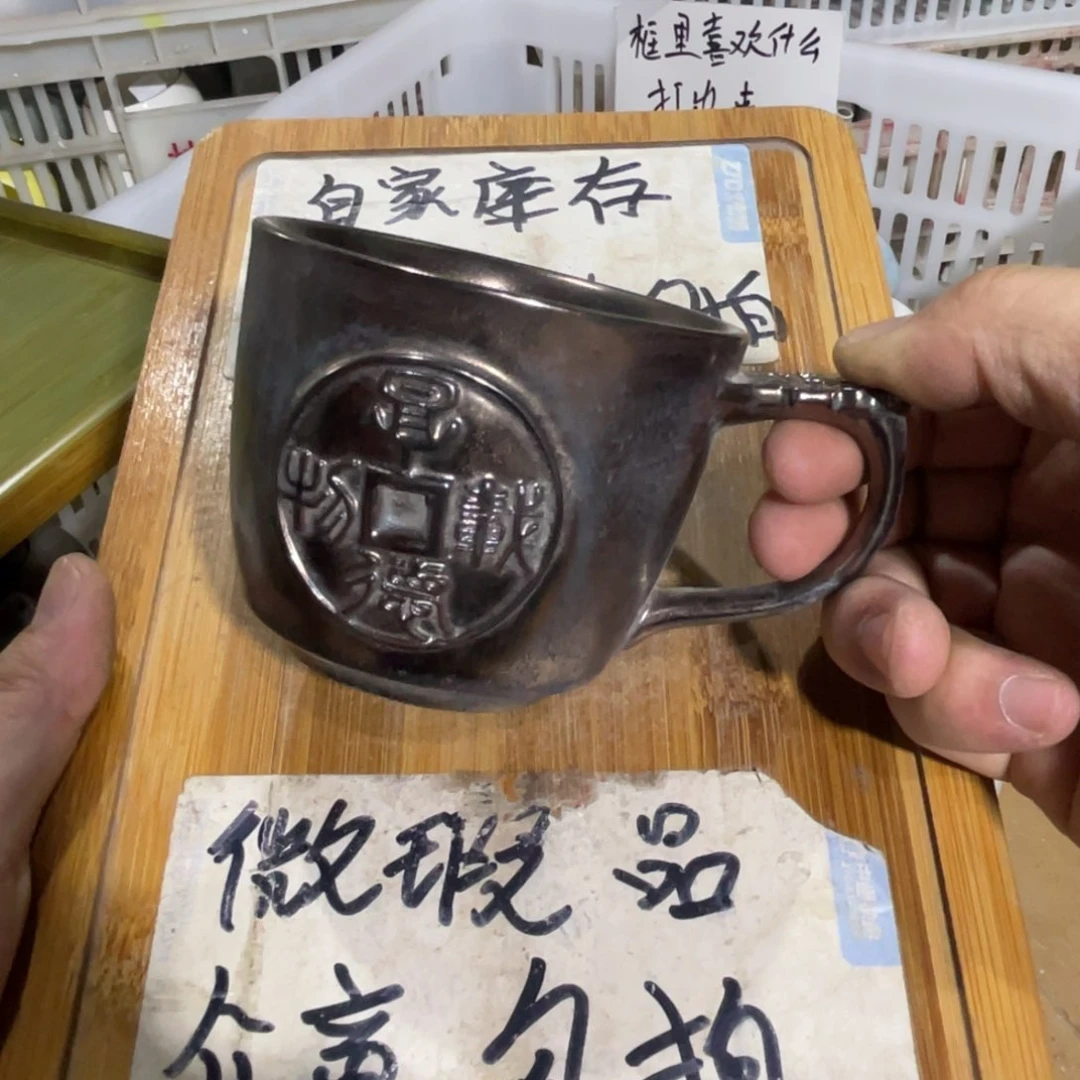 框里喜欢什么
打出来
自家库存
勿拍
厚德載物
微瑕品
介意勿拍